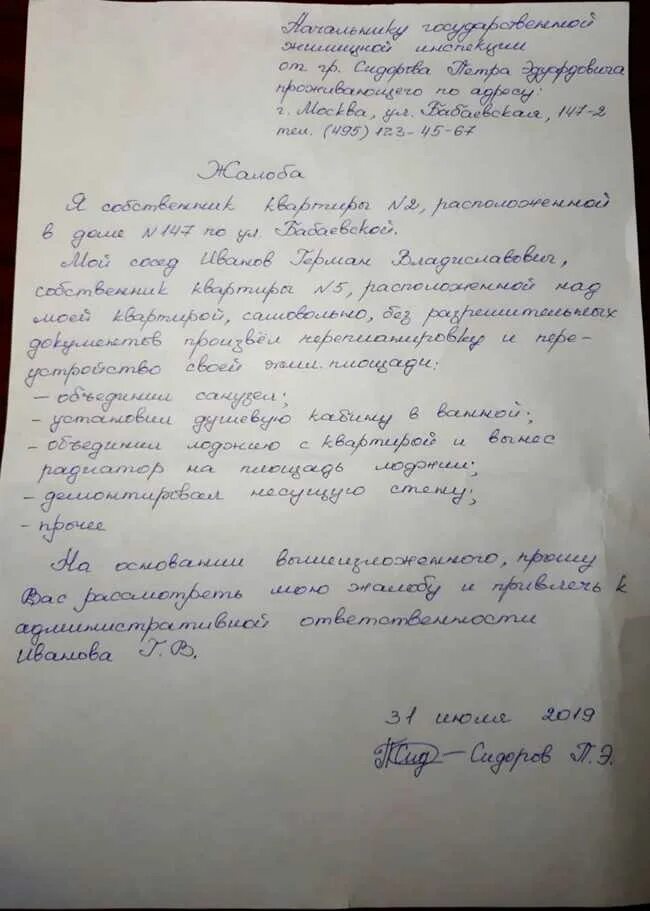 Начальнику государственной
жилищной инспекции
от гр. Сидорова Петра Эдуардовича
проживающего по адресу:
г. Москва, ул. Бабаевская, 147-2
тел. (495) 123-45-67
Жалоба
Я собственник квартиры №2, расположенной
в доме №147 по ул. Бабаевской.
Мой сосед Иванов Герман Владиславович,
собственник квартиры №5, расположенной над
моей квартирой, самовольно, без разрешительных
документов произвёл перепланировку и пере-
устройство своей жил. площади:
- объединил санузел;
- установил душевую кабину в ванной;
- объединил лоджию с квартирой и вынес
радиатор на площадь лоджии;
- демонтировал несущую стену;
- прочее
На основании вышеизложенного, прошу
Вас рассмотреть мою жалобу и привлечь к
административной ответственности
Иванова Г.В.
31 июля 2019
ПСид — Сидоров П.Э.